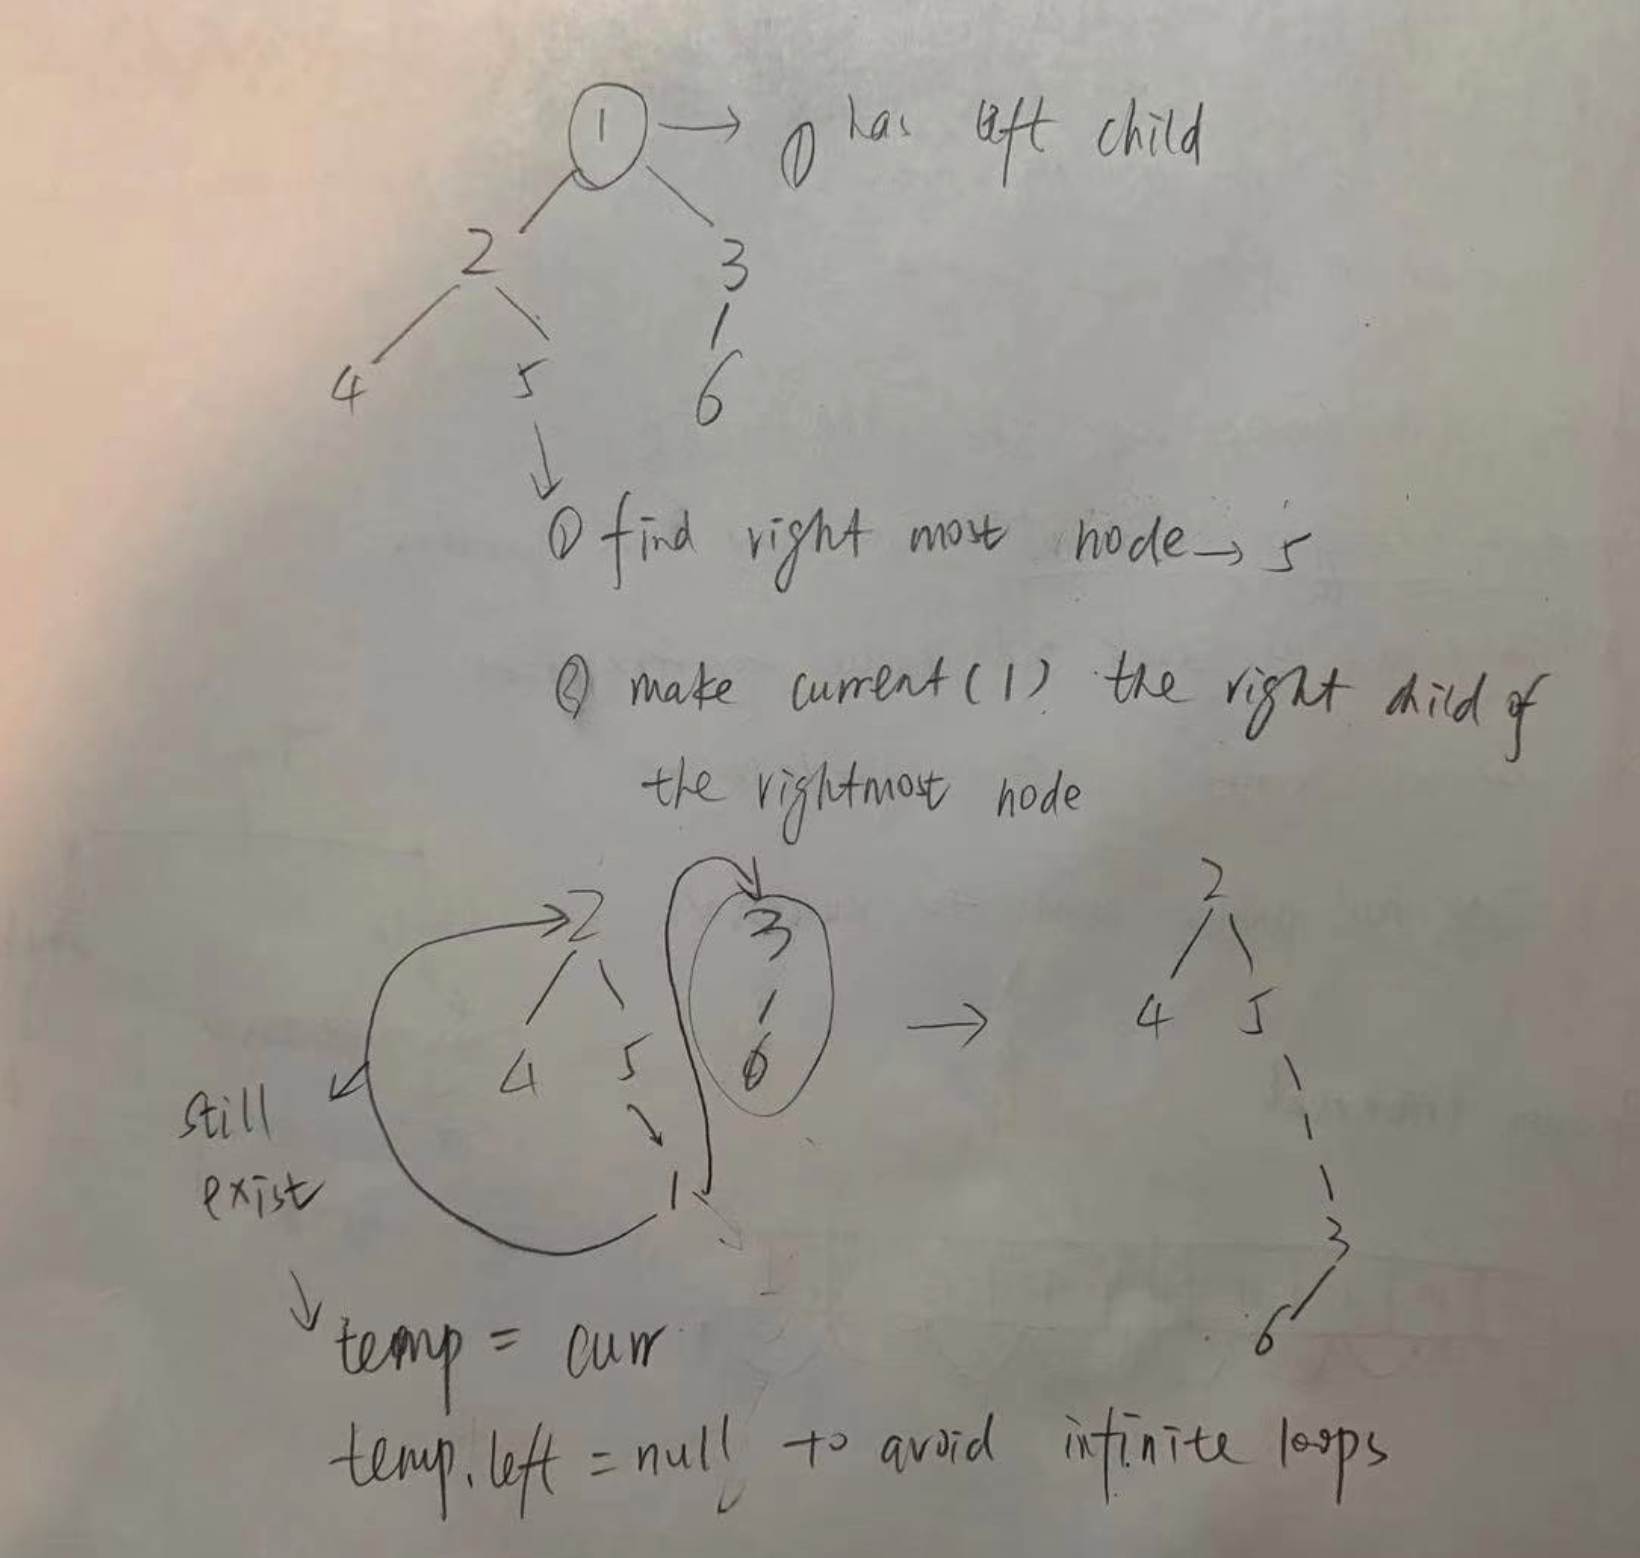 1 → ① has left child
2 3
4 5 6
① find right most node → 5
② make current (1) the right child of
the rightmost node
2 3 2
4 5 6 → 4 5
still
exist
1
3
6
temp = curr
temp.left = null to avoid infinite loops